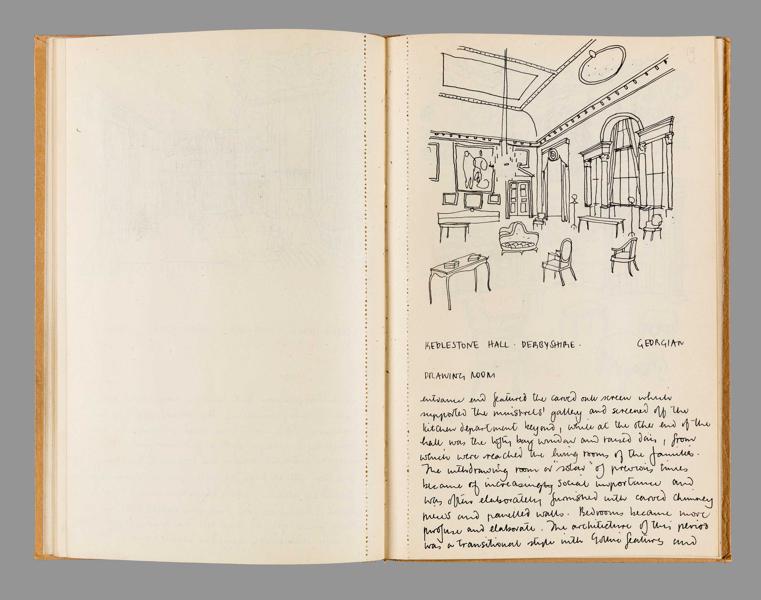 KEDLESTONE HALL · DERBYSHIRE · GEORGIAN
DRAWING ROOM
entrance end featured the carved oak screen which
supported the minstrels' gallery and screened off the
kitchen department beyond, while at the other end of the
hall was the lofty bay window and raised dais, from
which were reached the living rooms of the families.
The withdrawing room or 'solar' of previous times
became of increasingly social importance and
was often elaborately furnished with carved chimney
pieces and panelled walls. Bedrooms became more
profuse and elaborate. The architecture of this period
was a transitional style with Gothic features and